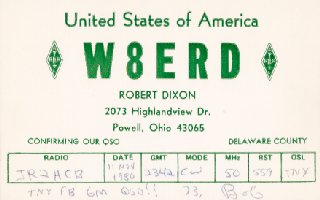 United States of America
W8ERD
ROBERT DIXON
2073 Highlandview Dr.
Powell, Ohio 43065
CONFIRMING OUR QSO DELAWARE COUNTY
RADIO DATE GMT MODE MHz RST QSL
JR2HCB 11 NOV 1980 2342 CW 50 559 TNX
TNX FB 6m QSO!! 73, Bob